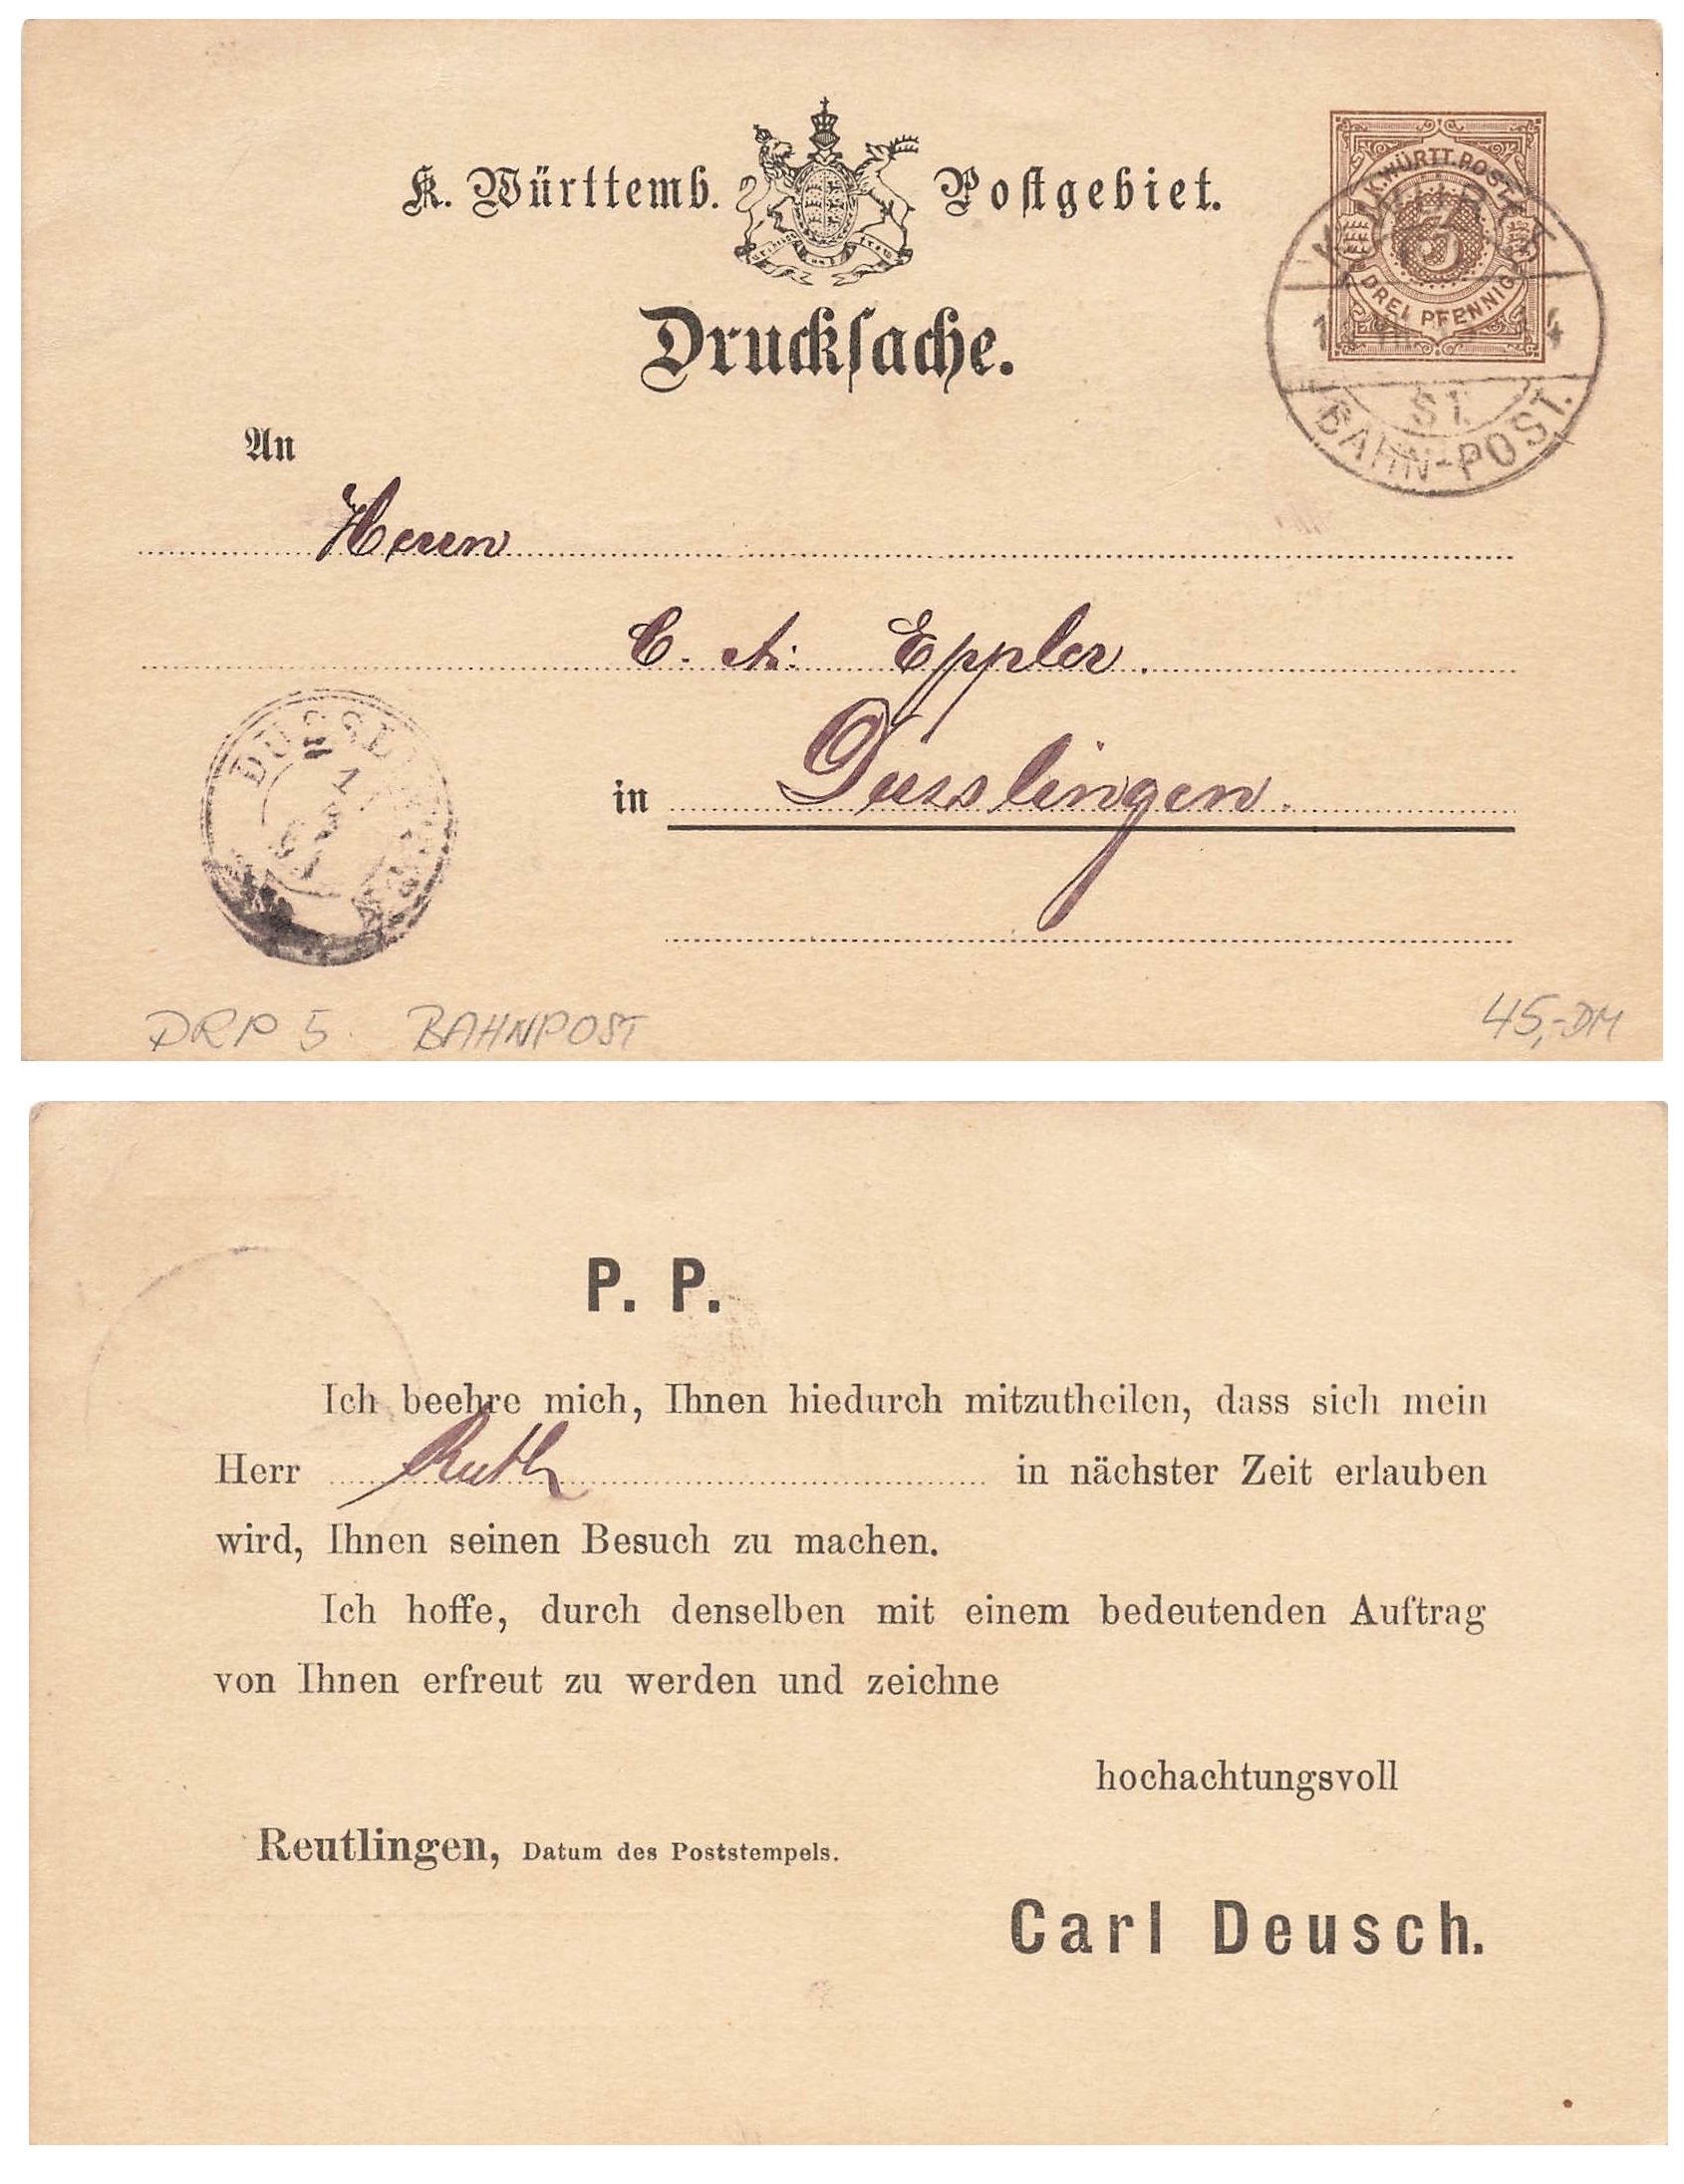 K. Württemb. Postgebiet.
K. WÜRTT. POST
3
DREI PFENNIG
ST.
BAHN-POST.
Drucksache.
An
Herrn
C. A. Eppler.
in Dusslingen.
DRP 5. BAHNPOST
45,-DM
P. P.
Ich beehre mich, Ihnen hiedurch mitzutheilen, dass sich mein
Herr Ruth in nächster Zeit erlauben
wird, Ihnen seinen Besuch zu machen.
Ich hoffe, durch denselben mit einem bedeutenden Auftrag
von Ihnen erfreut zu werden und zeichne
hochachtungsvoll
Reutlingen, Datum des Poststempels.
Carl Deusch.